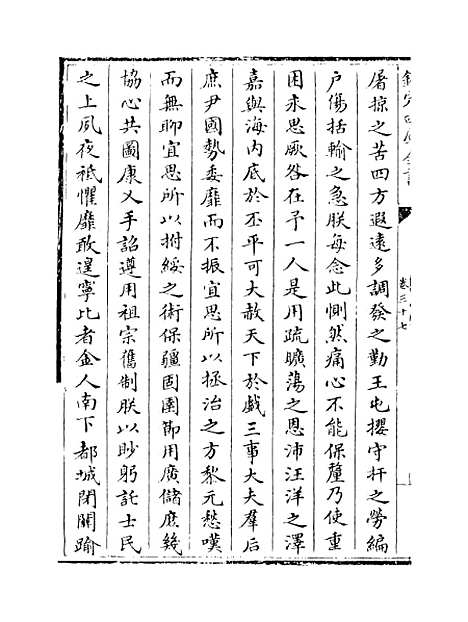 欽定四庫全書
卷三十七
屠掠之苦四方遐遠多調發之勤王屯擐守扞之勞編
户傷括輸之急朕每念此惻然痛心不能保釐乃使重
困永思厥咎在予一人是用疏曠蕩之恩沛汪洋之澤
嘉與海内底於丕平可大赦天下於戲三事大夫羣后
庶尹國勢委靡而不振宜思所以拯治之方黎元愁嘆
而無聊宜思所以拊綏之術保疆固圉節用廣儲庶幾
協心共圖康乂手詔遵用祖宗舊制朕以眇躬託士民
之上夙夜祗懼靡敢遑寧比者金人南下都城閉關踰